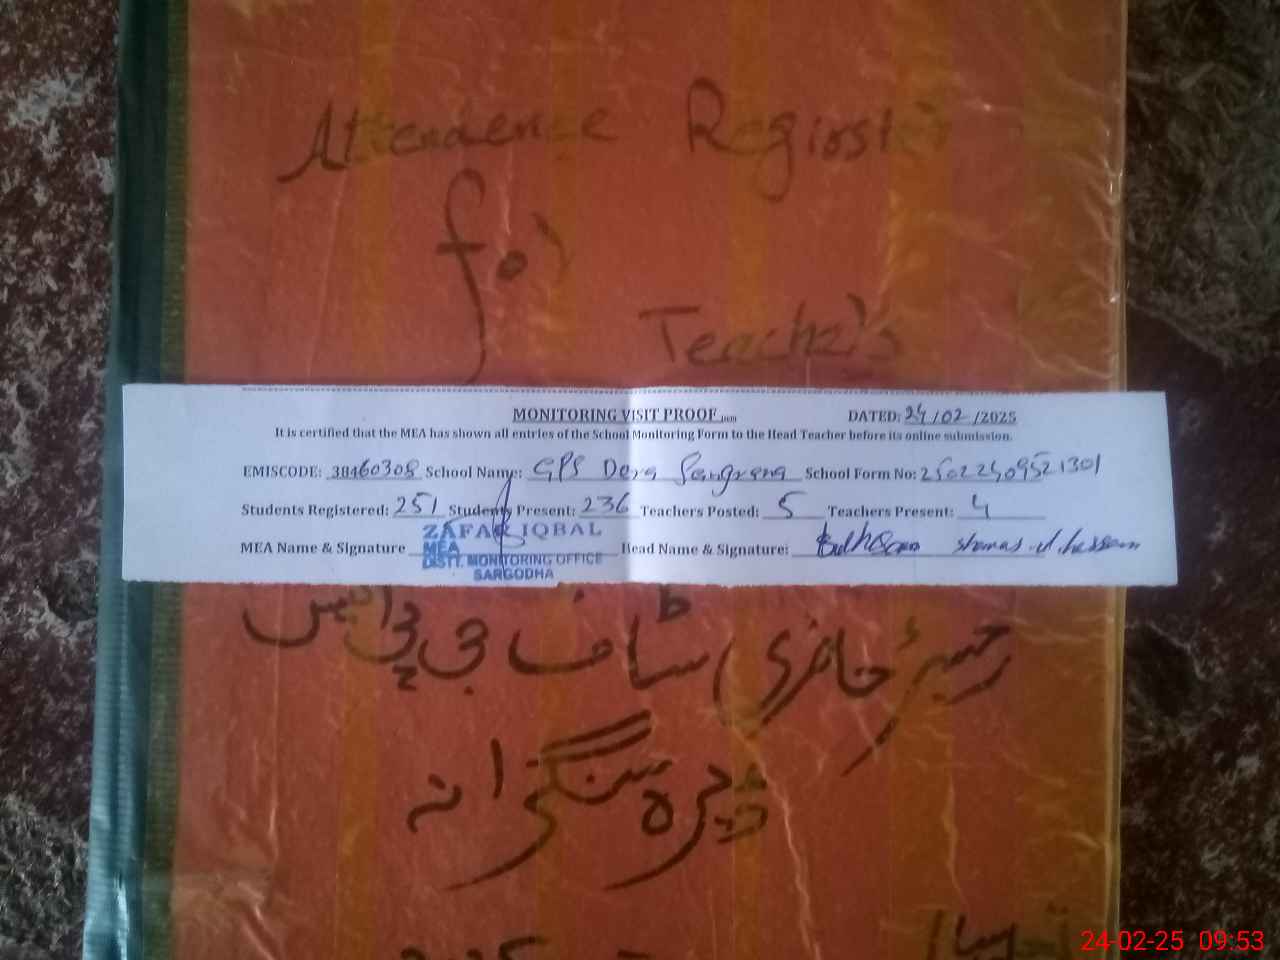 Attendence Regirster
for
Teacher's
MONITORING VISIT PROOF
DATED: 24/02/2025
It is certified that the MEA has shown all entries of the School Monitoring Form to the Head Teacher before its online submission.
EMISCODE: 38460308 School Name: GPS Dera Sangrana School Form No: 25022409521301
Students Registered: 251 Students Present: 236 Teachers Posted: 5 Teachers Present: 4
MEA Name & Signature Head Name & Signature: shamas ul hassan
ZAFAR IQBAL
MEA
DISTT. MONITORING OFFICE
SARGODHA
رجسٹر حاضری سٹاف جی پی ایس
ڈیرہ سنگرانہ
24-02-25 09:53